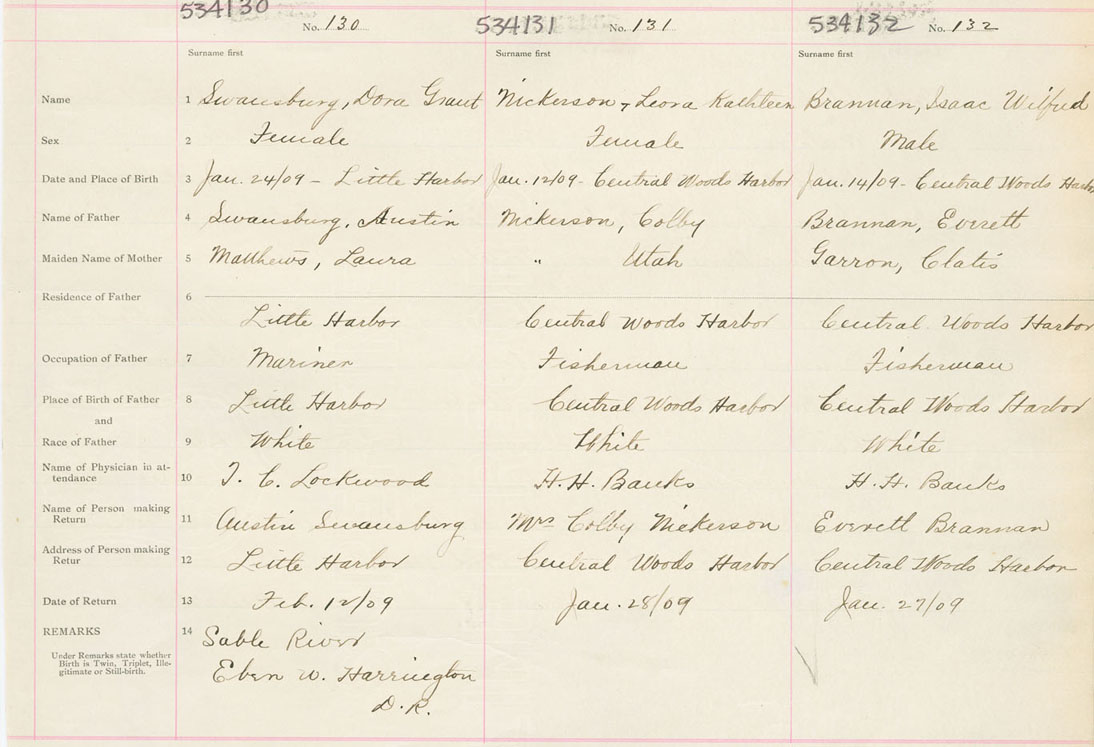 534130 No. 130 534131 No. 131 534132 No. 132
Surname first Surname first Surname first
Name 1 Swansburg, Dora Grant Nickerson, Leora Kathleen Brannan, Isaac Wilfred
Sex 2 Female Female Male
Date and Place of Birth 3 Jan. 24/09 - Little Harbor Jan. 12/09 - Central Woods Harbor Jan. 14/09 - Central Woods Harbor
Name of Father 4 Swansburg, Austin Nickerson, Colby Brannan, Everett
Maiden Name of Mother 5 Matthews, Laura " Utah Garron, Clatis
Residence of Father 6
Little Harbor Central Woods Harbor Central Woods Harbor
Occupation of Father 7 Mariner Fisherman Fisherman
Place of Birth of Father 8 Little Harbor Central Woods Harbor Central Woods Harbor
and
Race of Father 9 White White White
Name of Physician in at-
tendance 10 T. C. Lockwood H. H. Banks H. H. Banks
Name of Person making
Return 11 Austin Swansburg Mrs Colby Nickerson Everett Brannan
Address of Person making
Retur 12 Little Harbor Central Woods Harbor Central Woods Harbor
Date of Return 13 Feb. 12/09 Jan. 28/09 Jan. 27/09
REMARKS 14 Sable River
Under Remarks state whether
Birth is Twin, Triplet, Ille-
gitimate or Still-birth.
Eben W. Harrington
D. R.